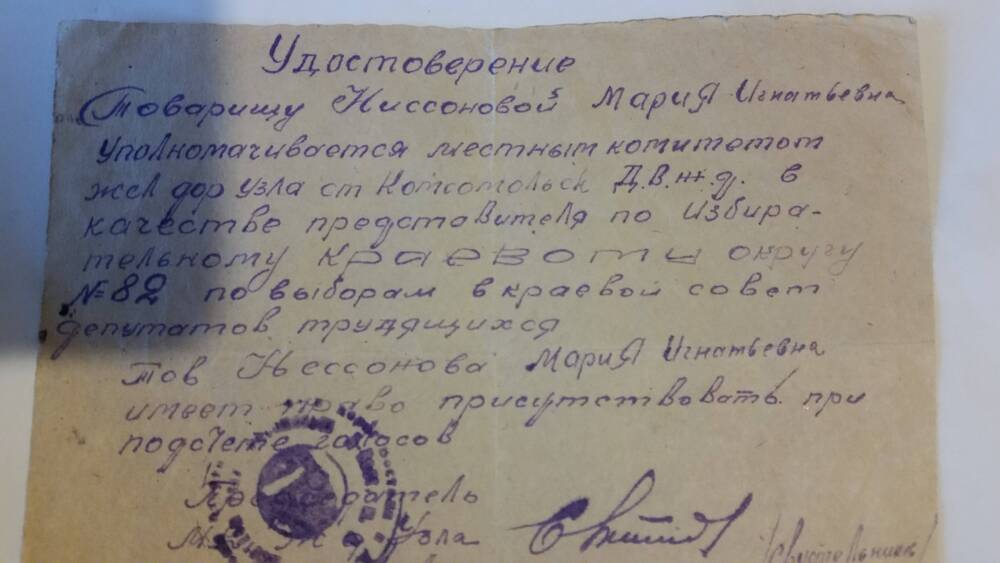 Удостоверение
Товарищу Ниссоновой Мария Игнатьевна
уполномачивается местным комитетом
жел дор узла ст Комсомольск Д.В.ж.д. в
качестве представителя по Избира-
тельному Краевому округу
№ 82 по выборам в краевой совет
депутатов трудящихся
Тов Нессонова Мария Игнатьевна
имеет право присутствовать при
подсчете голосов
Председатель
Узла